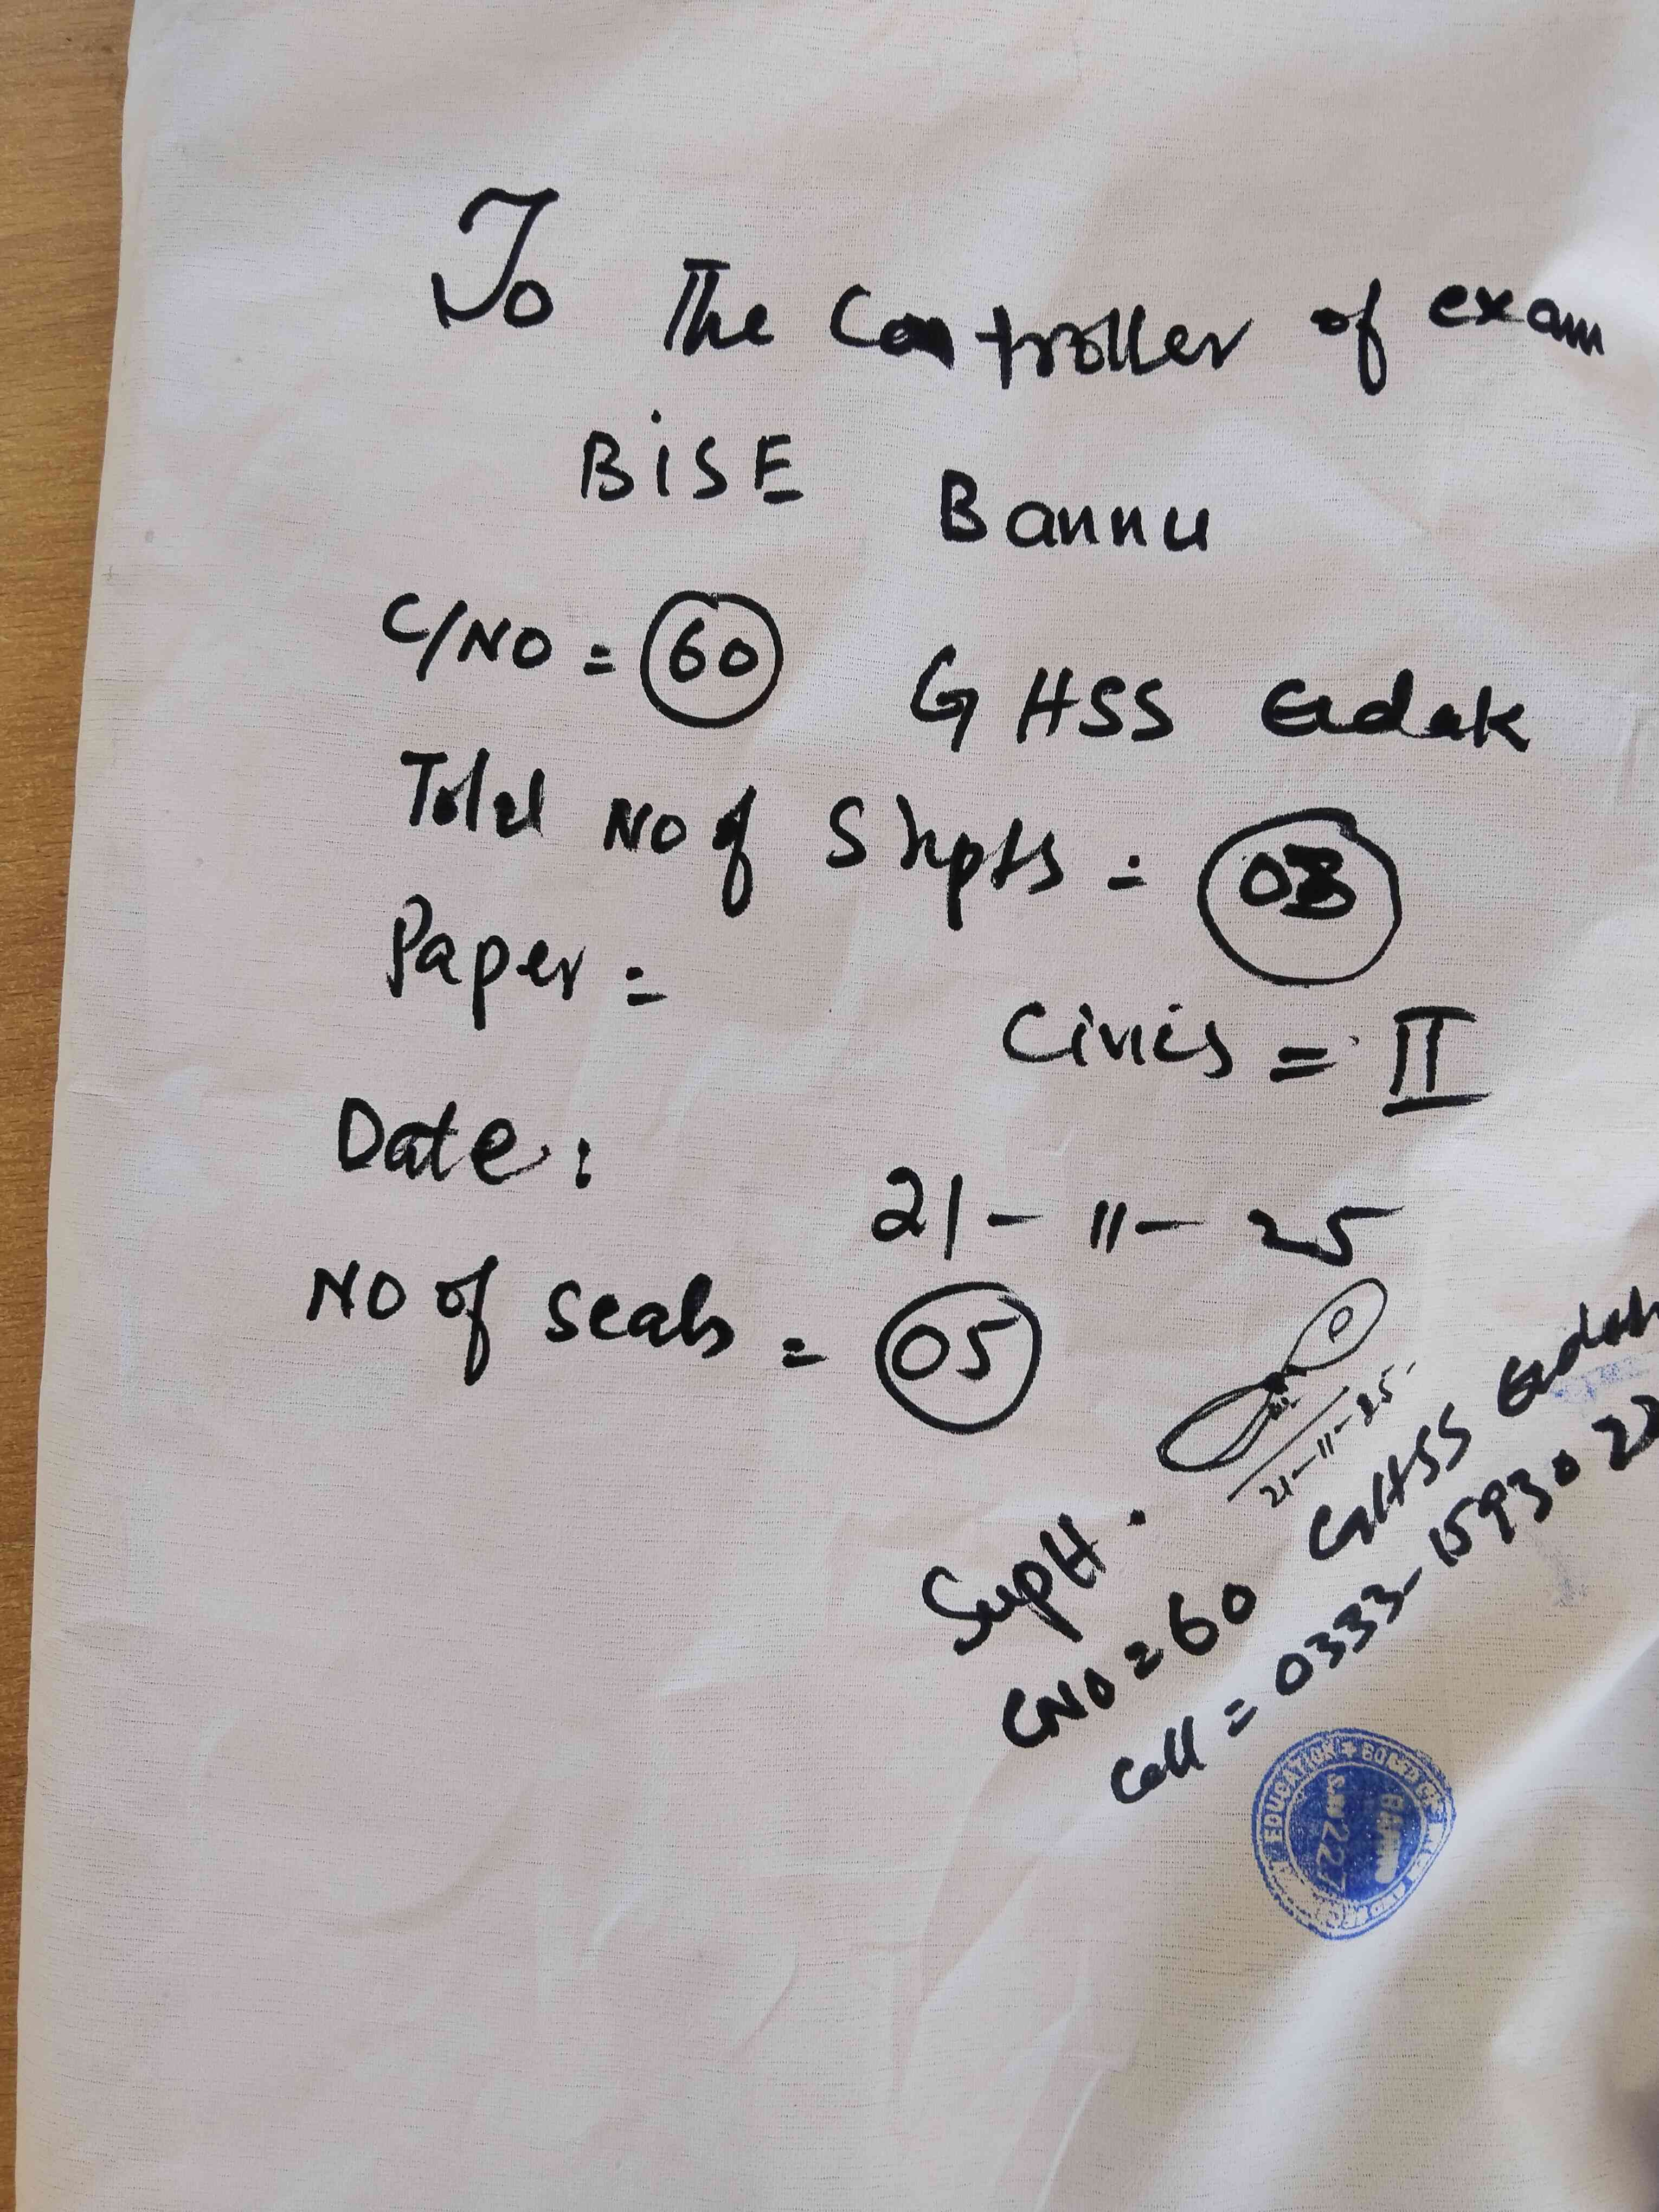 To The Controller of exam
BiSE Bannu
C/NO = 60 GHSS Eidak
Total NO of Skpts = 03
Paper = Civics = II
Date: 21-11-25
NO of seals = 05
21-11-25
Supti.
CNO = 60 GHSS Eidak
Cell = 0333-1593022
EDUCATION * BOARD OF INTER AND
BANNU
227